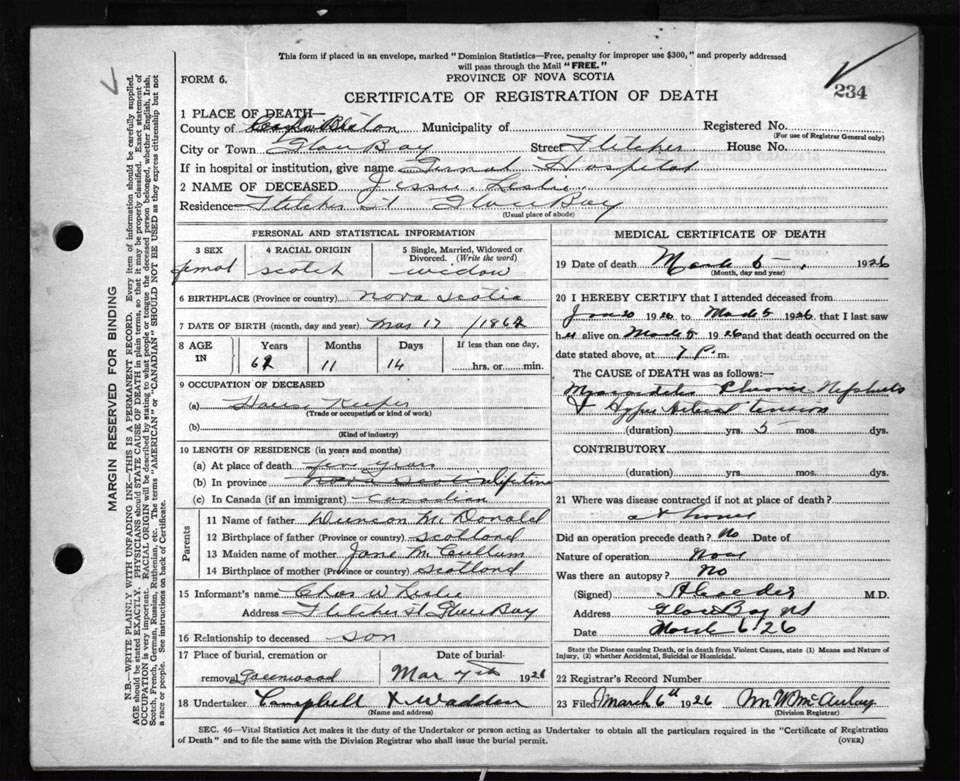 This form if placed in an envelope, marked "Dominion Statistics—Free, penalty for improper use $300," and properly addressed
will pass through the Mail "FREE."
FORM 6.
PROVINCE OF NOVA SCOTIA
234
CERTIFICATE OF REGISTRATION OF DEATH
1 PLACE OF DEATH—
County of Cape Breton Municipality of Registered No.
(For use of Registrar General only)
City or Town Glace Bay Street Fletcher House No.
If in hospital or institution, give name Hospital
2 NAME OF DECEASED Jessie Leslie
Residence Fletcher St Glace Bay
(Usual place of abode)
PERSONAL AND STATISTICAL INFORMATION
3 SEX
femal
4 RACIAL ORIGIN
scotch
5 Single, Married, Widowed or
Divorced. (Write the word)
widow
6 BIRTHPLACE (Province or country) Nova Scotia
7 DATE OF BIRTH (month, day and year) Mar 17 /1862
8 AGE
IN
Years Months Days If less than one day,
11 14 hrs. or min.
9 OCCUPATION OF DECEASED
(a) House Keeper
(Trade or occupation or kind of work)
(b)
(Kind of industry)
10 LENGTH OF RESIDENCE (in years and months)
(a) At place of death five years
(b) In province Nova Scotia lifetime
(c) In Canada (if an immigrant) Canadian
Parents
11 Name of father Duncan McDonald
12 Birthplace of father (Province or country) Scotland
13 Maiden name of mother Jane McCullum
14 Birthplace of mother (Province or country) Scotland
15 Informant's name Chas W Leslie
Address Fletcher St Glace Bay
16 Relationship to deceased son
17 Place of burial, cremation or Date of burial-
removal Greenwood Mar 7th 1926
18 Undertaker Campbell & Wadden
(Name and address)
MEDICAL CERTIFICATE OF DEATH
19 Date of death March 5 1926
(Month, day and year)
20 I HEREBY CERTIFY that I attended deceased from
Jan 20 1926 to March 5 1926 that I last saw
her alive on March 5 1926 and that death occurred on the
date stated above, at 7 P. m.
The CAUSE of DEATH was as follows:—
Myocarditis Chronic Nephritis
& Hyper Arterial tension
(duration) yrs. 5 mos. dys.
CONTRIBUTORY.
(duration) yrs. mos. dys.
21 Where was disease contracted if not at place of death?
at home
Did an operation precede death? No Date of
Nature of operation None
Was there an autopsy? No
(Signed) M.D.
Address Glace Bay NS
Date March 6/26
State the Disease causing Death, or in death from Violent Causes, state (1) Means and Nature of
Injury, (2) whether Accidental, Suicidal or Homicidal.
22 Registrar's Record Number
23 Filed March 6th 1926 M W McAulay
(Division Registrar)
SEC. 46—Vital Statistics Act makes it the duty of the Undertaker or person acting as Undertaker to obtain all the particulars required in the "Certificate of Registration
of Death" and to file the same with the Division Registrar who shall issue the burial permit.
(OVER)
MARGIN RESERVED FOR BINDING
N.B.—WRITE PLAINLY WITH UNFADING INK—THIS IS A PERMANENT RECORD. Every item of information should be carefully supplied.
AGE should be stated EXACTLY. PHYSICIANS should STATE CAUSE OF DEATH in plain terms, so that it may be properly classified. Exact statement of
OCCUPATION is very important. RACIAL ORIGIN will be described by stating to what people or tongue the deceased person belonged, whether English, Irish,
Scotch, French, German, Russian, Ruthenian, etc. The terms "AMERICAN" or "CANADIAN" SHOULD NOT BE USED as they express citizenship but not
a race or people. See instructions on back of Certificate.